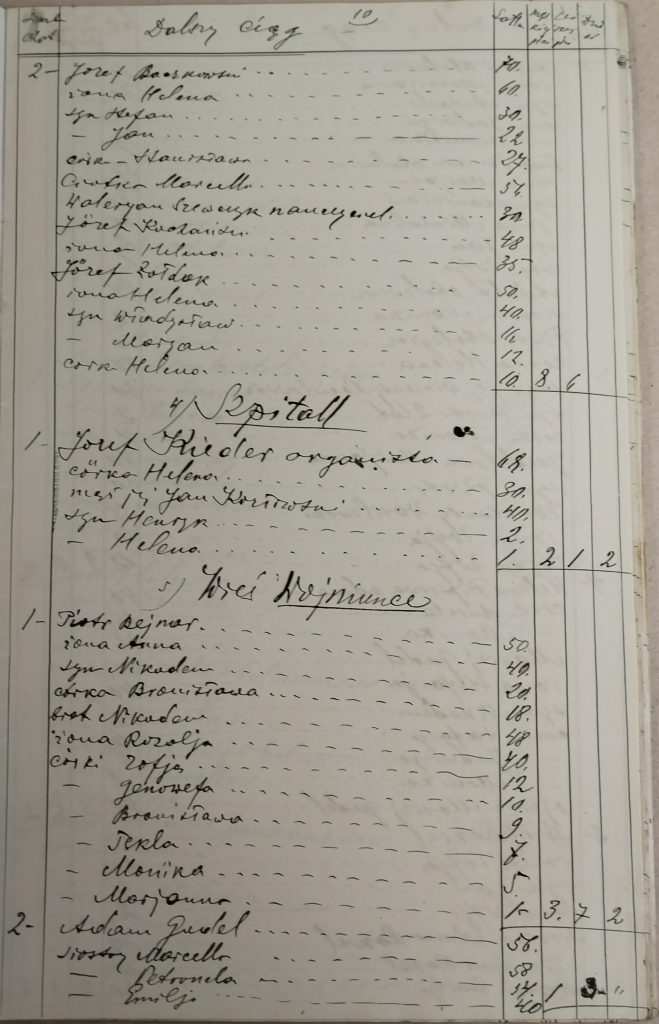 Dalszy ciąg 10 Latta
2- Józef Baczkowski 70.
żona Helena 60.
syn Stefan 30.
- Jan 22
córk - Stanisława 27.
Ciotka Marcella 51.
Waleryan Szewczyk nauczyciel. 30.
Józef 48
żona Helena 35.
Józef Żołdak 50.
żona Helena 40.
syn Władysław 16
- Marjan 12.
córk Helena 10. 8. 6
4) Szpitall
1- Józef Kieder organista - 68.
córka Helena 30.
mąż jej Jan Kozłowski 40.
syn Henryk 2.
- Helena 1. 2 1 2
5) Wieś Wojniunce
1- Piotr Rejmer. 50.
żona Anna 40.
syn Nikodem 20.
córka Bronisława 18.
brat Nikodem 48
żona Rozalja 40.
córki Zofja 12
- Genowefa 10.
- Bronisława 9.
- Tekla 7.
- Monika 5.
- Marjanna 1- 3. 7 2
2- Adam Gudel 56.
siostry Marcella 58
- Petronela 54.
- Emilja 40 1 3 "